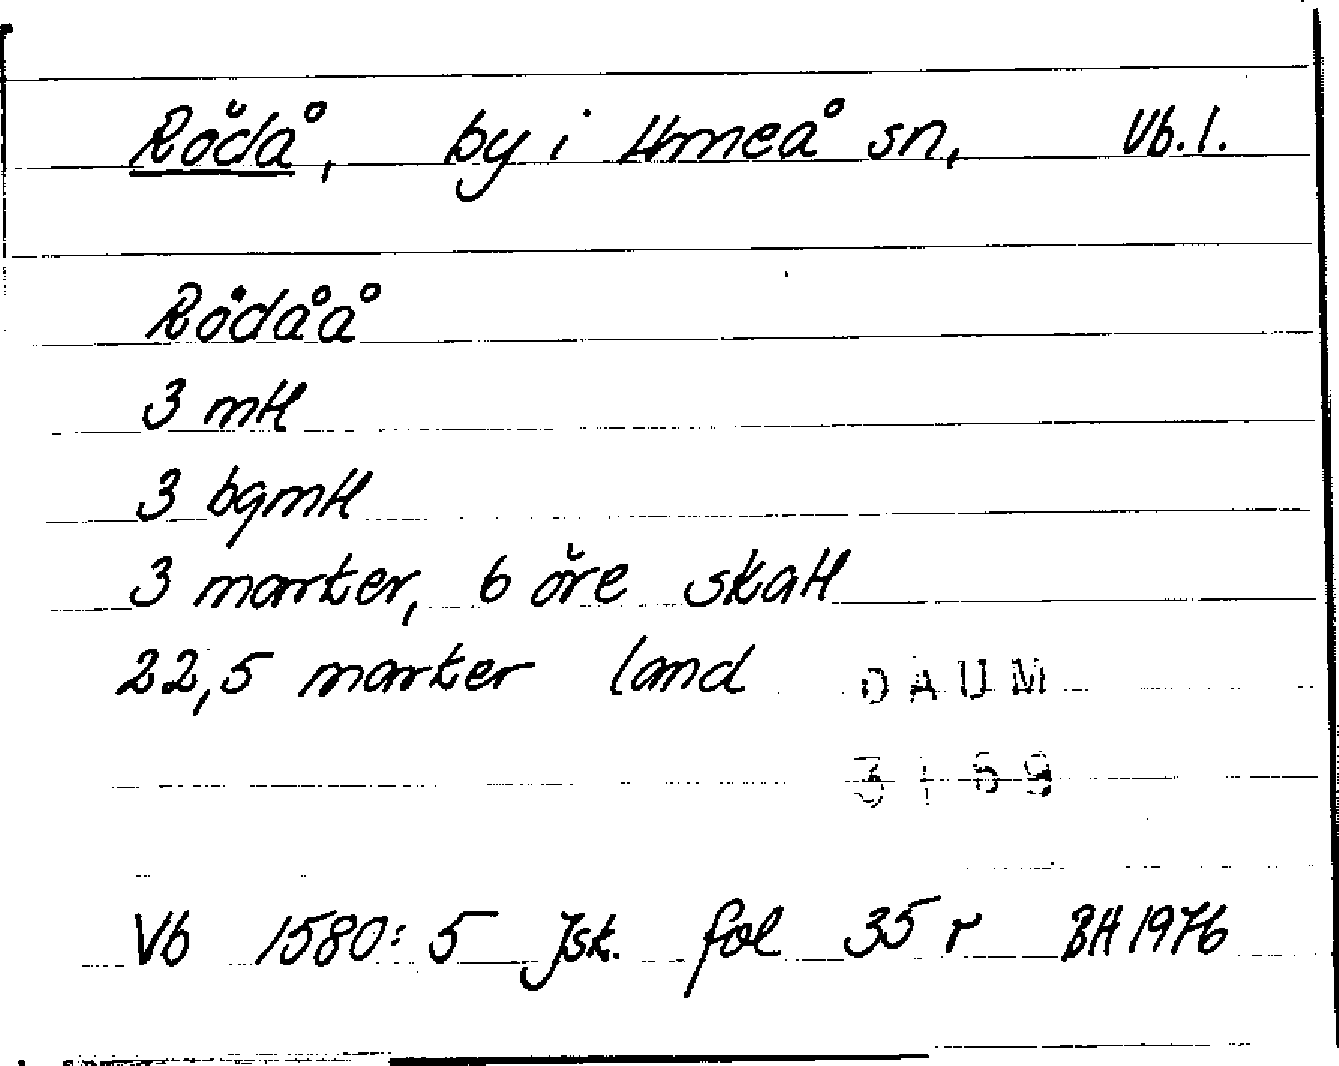 Rödå, by i Umeå sn, Vb.l.
Rödåå
3 mtl
3 bgmtl
3 marker, 6 öre skatt
22,5 marker land DAUM
3169
Vb 1580:5 Jsk. fol 35 r BH 1976